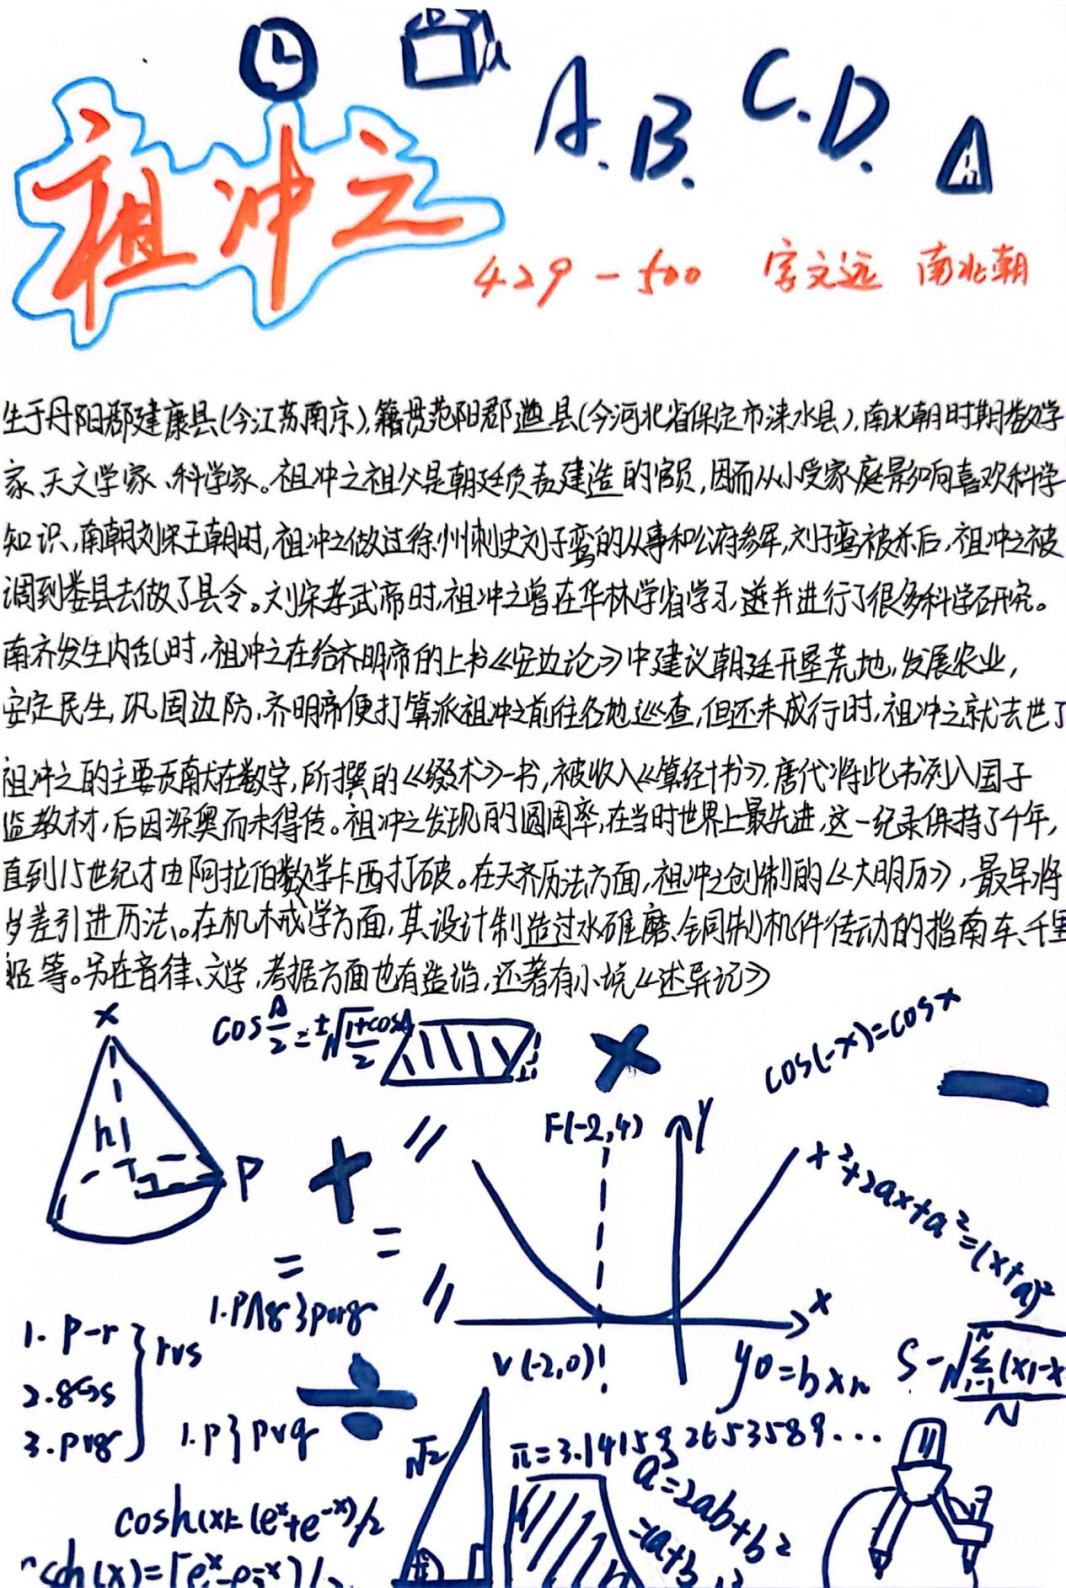 A. B. C. D.
祖冲之
429-500 字文远 南北朝
生于丹阳郡建康县(今江苏南京),籍贯范阳郡遒县(今河北省保定市涞水县),南北朝时期数学
家、天文学家、科学家。祖冲之祖父是朝廷负责建造的官员,因而从小受家庭影响喜欢科学
知识,南朝刘宋王朝时,祖冲之做过徐州刺史刘子鸾的从事和公府参军,刘子鸾被杀后,祖冲之被
调到娄县去做了县令。刘宋孝武帝时,祖冲之曾在华林学省学习,遂并进行了很多科学研究。
南齐发生内乱时,祖冲之在给齐明帝的上书《安边论》中建议朝廷开垦荒地,发展农业,
安定民生,巩固边防,齐明帝便打算派祖冲之前往各地巡查,但还未成行时,祖冲之就去世了
祖冲之的主要贡献在数学,所撰的《缀术》一书,被收入《算经十书》,唐代将此书列入国子
监教材,后因深奥而未得传。祖冲之发现的圆周率,在当时世界上最先进,这一纪录保持了千年,
直到15世纪才由阿拉伯数学卡西打破。在天齐历法方面,祖冲之创制的《大明历》,最早将
岁差引进历法。在机木戒学方面,其设计制造过水碓磨、铜制机件传动的指南车、千里
船等。另在音律、文学,考据方面也有造诣,还著有小说《述异记》
x
cos A/2=±√1+cosA/2
cos(-x)=cosx
h
P
F(-2,4)
y
x²+2ax+a²=(x+a)²
x
V(-2,0)
1. P-r
rvs
3. pvg
1.P} pvq
y0=bxn
√2
π=3.14159 2653589...
cosh(x)=(eˣ+e⁻ˣ)/2
a²=2ab+b2